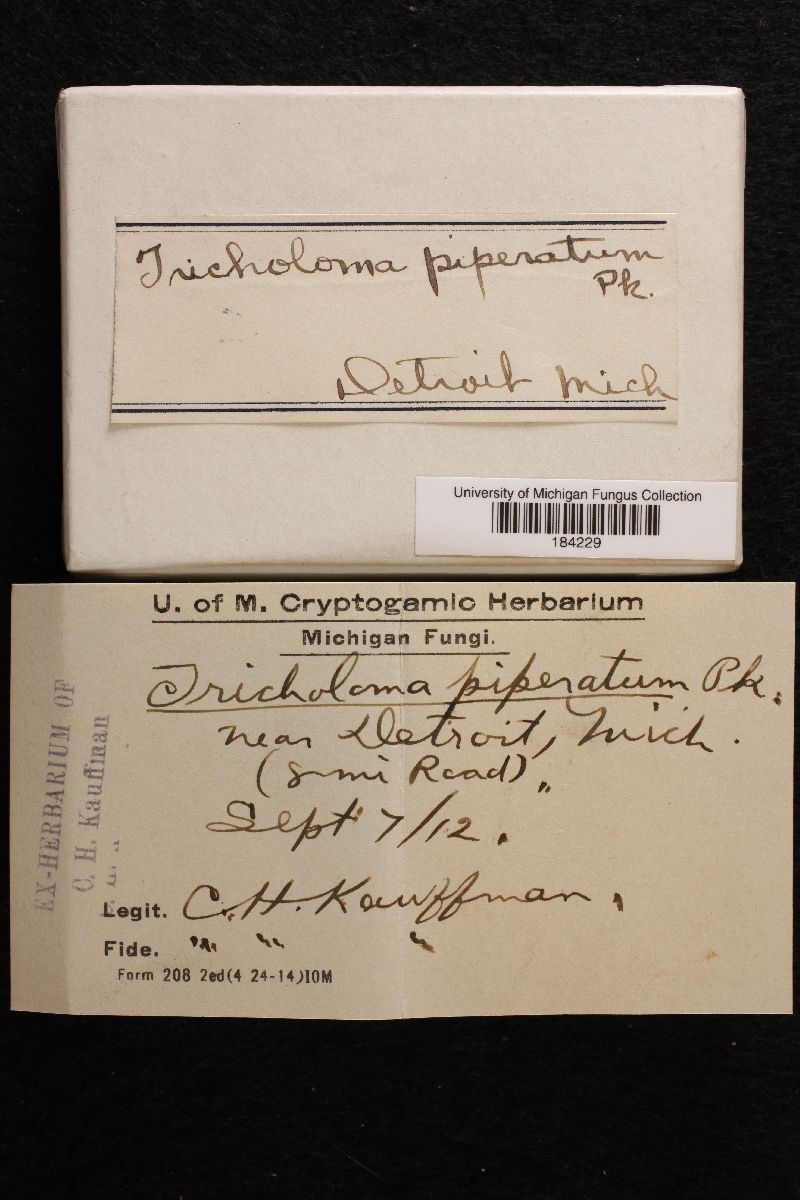 Tricholoma piperatum
Pk.
Detroit Mich
University of Michigan Fungus Collection
184229
U. of M. Cryptogamic Herbarium
Michigan Fungi.
Tricholoma piperatum Pk.
near Detroit, Mich.
mi Road)
Sept 7/12.
Legit. C. H. Kauffman.
Fide. " " "
Form 208 2ed(4 24-14)10M
EX-HERBARIUM OF
C. H. Kauffman